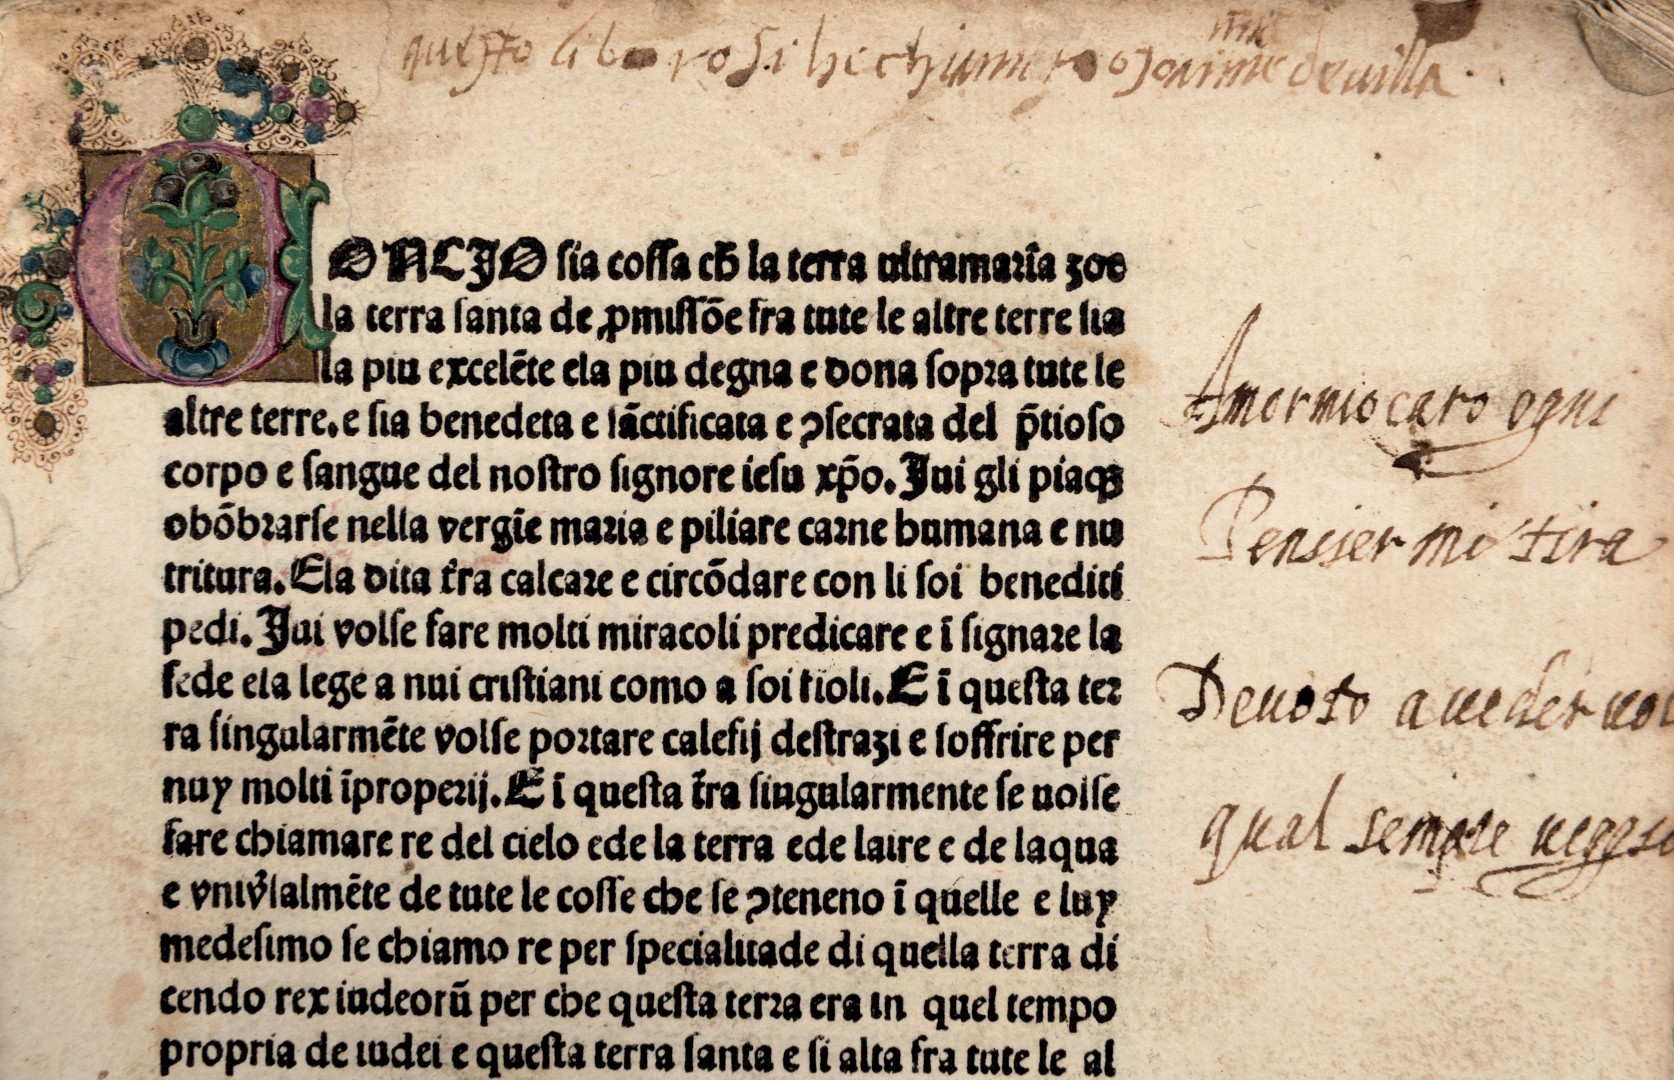 questo libero si he chiamato Joanne de villa
CONCIO sia cossa ch̄ la terra ultramarīa zoe
la terra santa de ꝓmissiōe fra tute le altre terre sia
la piu excelēte ela piu degna e dona sopra tute le
altre terre. e sia benedeta e sāctificata e ↄsecrata del p̄tioso
corpo e sangue del nostro signore iesu xp̄o. Iui gli piaqꝫ
obōbrarse nella vergīe maria e piliare carne humana e nu
tritura. Ela dita t̄ra calcare e circōdare con li soi benediti
pedi. Iui volse fare molti miracoli predicare e ī signare la
fede ela lege a nui cristiani como a soi fioli. E ī questa ter
ra singularmēte volse portare calefij destrazi e soffrire per
nuy molti īproperij. E ī questa t̄ra singularmente se uolse
fare chiamare re del cielo ede la terra ede laire e de laqua
e vniv̄salmēte de tute le cosse che se ↄteneno ī quelle e luy
medesimo se chiamo re per specialitade di quella terra di
cendo rex iudeorū per che questa terra era in quel tempo
propria de iudei e questa terra santa e si alta fra tute le al
Amor mio caro ogni
Pensier mi tira
Deuoto a ueder uoi
qual sempre ueggio